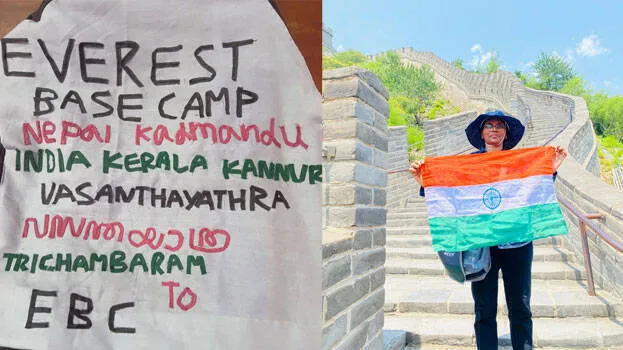 EVEREST
BASE CAMP
Nepal Kadmandu
INDIA KERALA KANNUR
VASANTHAYATHRA
വസന്തയാത്ര
TRICHAMBARAM
TO
EBC